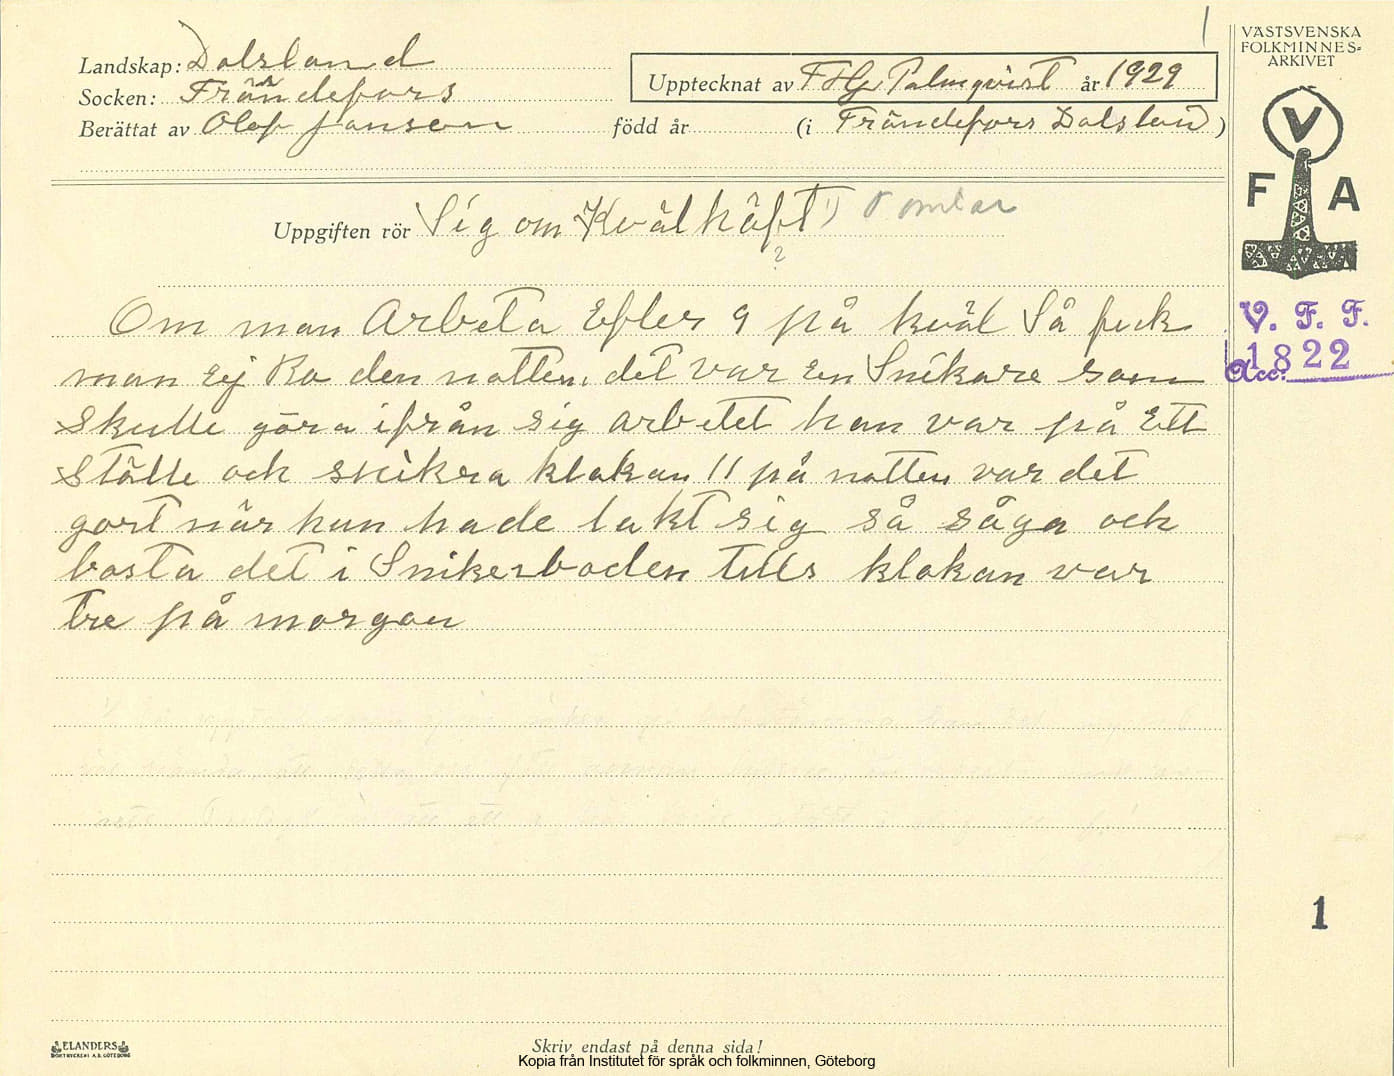 1
Landskap: Dalsland
Socken: Frändefors
Berättat av Olof Janson född år (i Frändefors Dalsland)
Upptecknat av F Hj Palmqvist år 1929
VÄSTSVENSKA
FOLKMINNES=
ARKIVET
V
F A
Uppgiften rör Sig om Kvälkäft 1) Tomtar
?
V. F. F.
Acc: 1822
Om man Arbeta Efter 9 på kväl Så feck
man Ej Ro den natten. det var En Snikare som
Skulle göra ifrån sig arbetet han var på Ett
Ställe och snikra klakan 11 på natten var det
gort när han hade lakt sig så såga och
bosta det i Snikerboden tills klakan var
tre på morgan
1
ELANDERS
BOKTRYCKERI A.B. GÖTEBORG
Skriv endast på denna sida!
Kopia från Institutet för språk och folkminnen, Göteborg